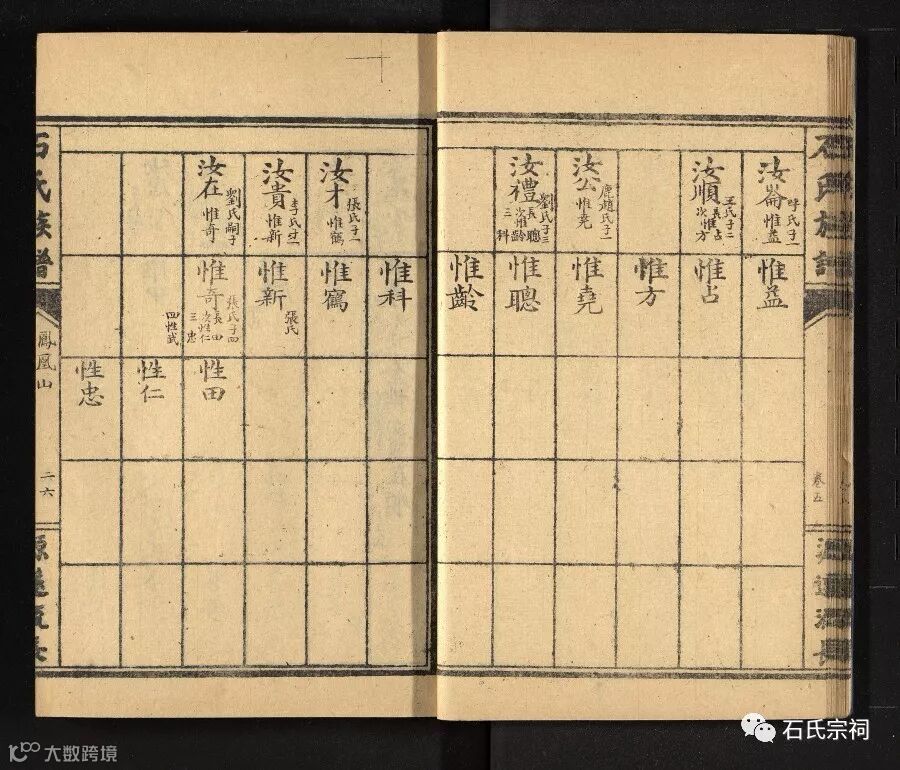 石氏族譜
卷五
源遠流長
汝崙
呼氏子一
惟益
汝順
王氏子二
長惟占
次惟方
汝公
鹿趙氏子一
惟堯
汝禮
劉氏子三
長惟聰
次惟齡
三科
惟益
惟占
惟方
惟堯
惟聰
惟齡
汝才
張氏子一
惟寫
汝貴
李氏子一
惟新
汝在
劉氏嗣子
惟奇
惟科
惟寫
惟新
張氏
惟奇
張氏子四
長性田
次性仁
三忠
四性武
性田
性仁
性忠
石氏族譜
鳳凰山
二六
源遠流長
石氏宗祠
大数跨境